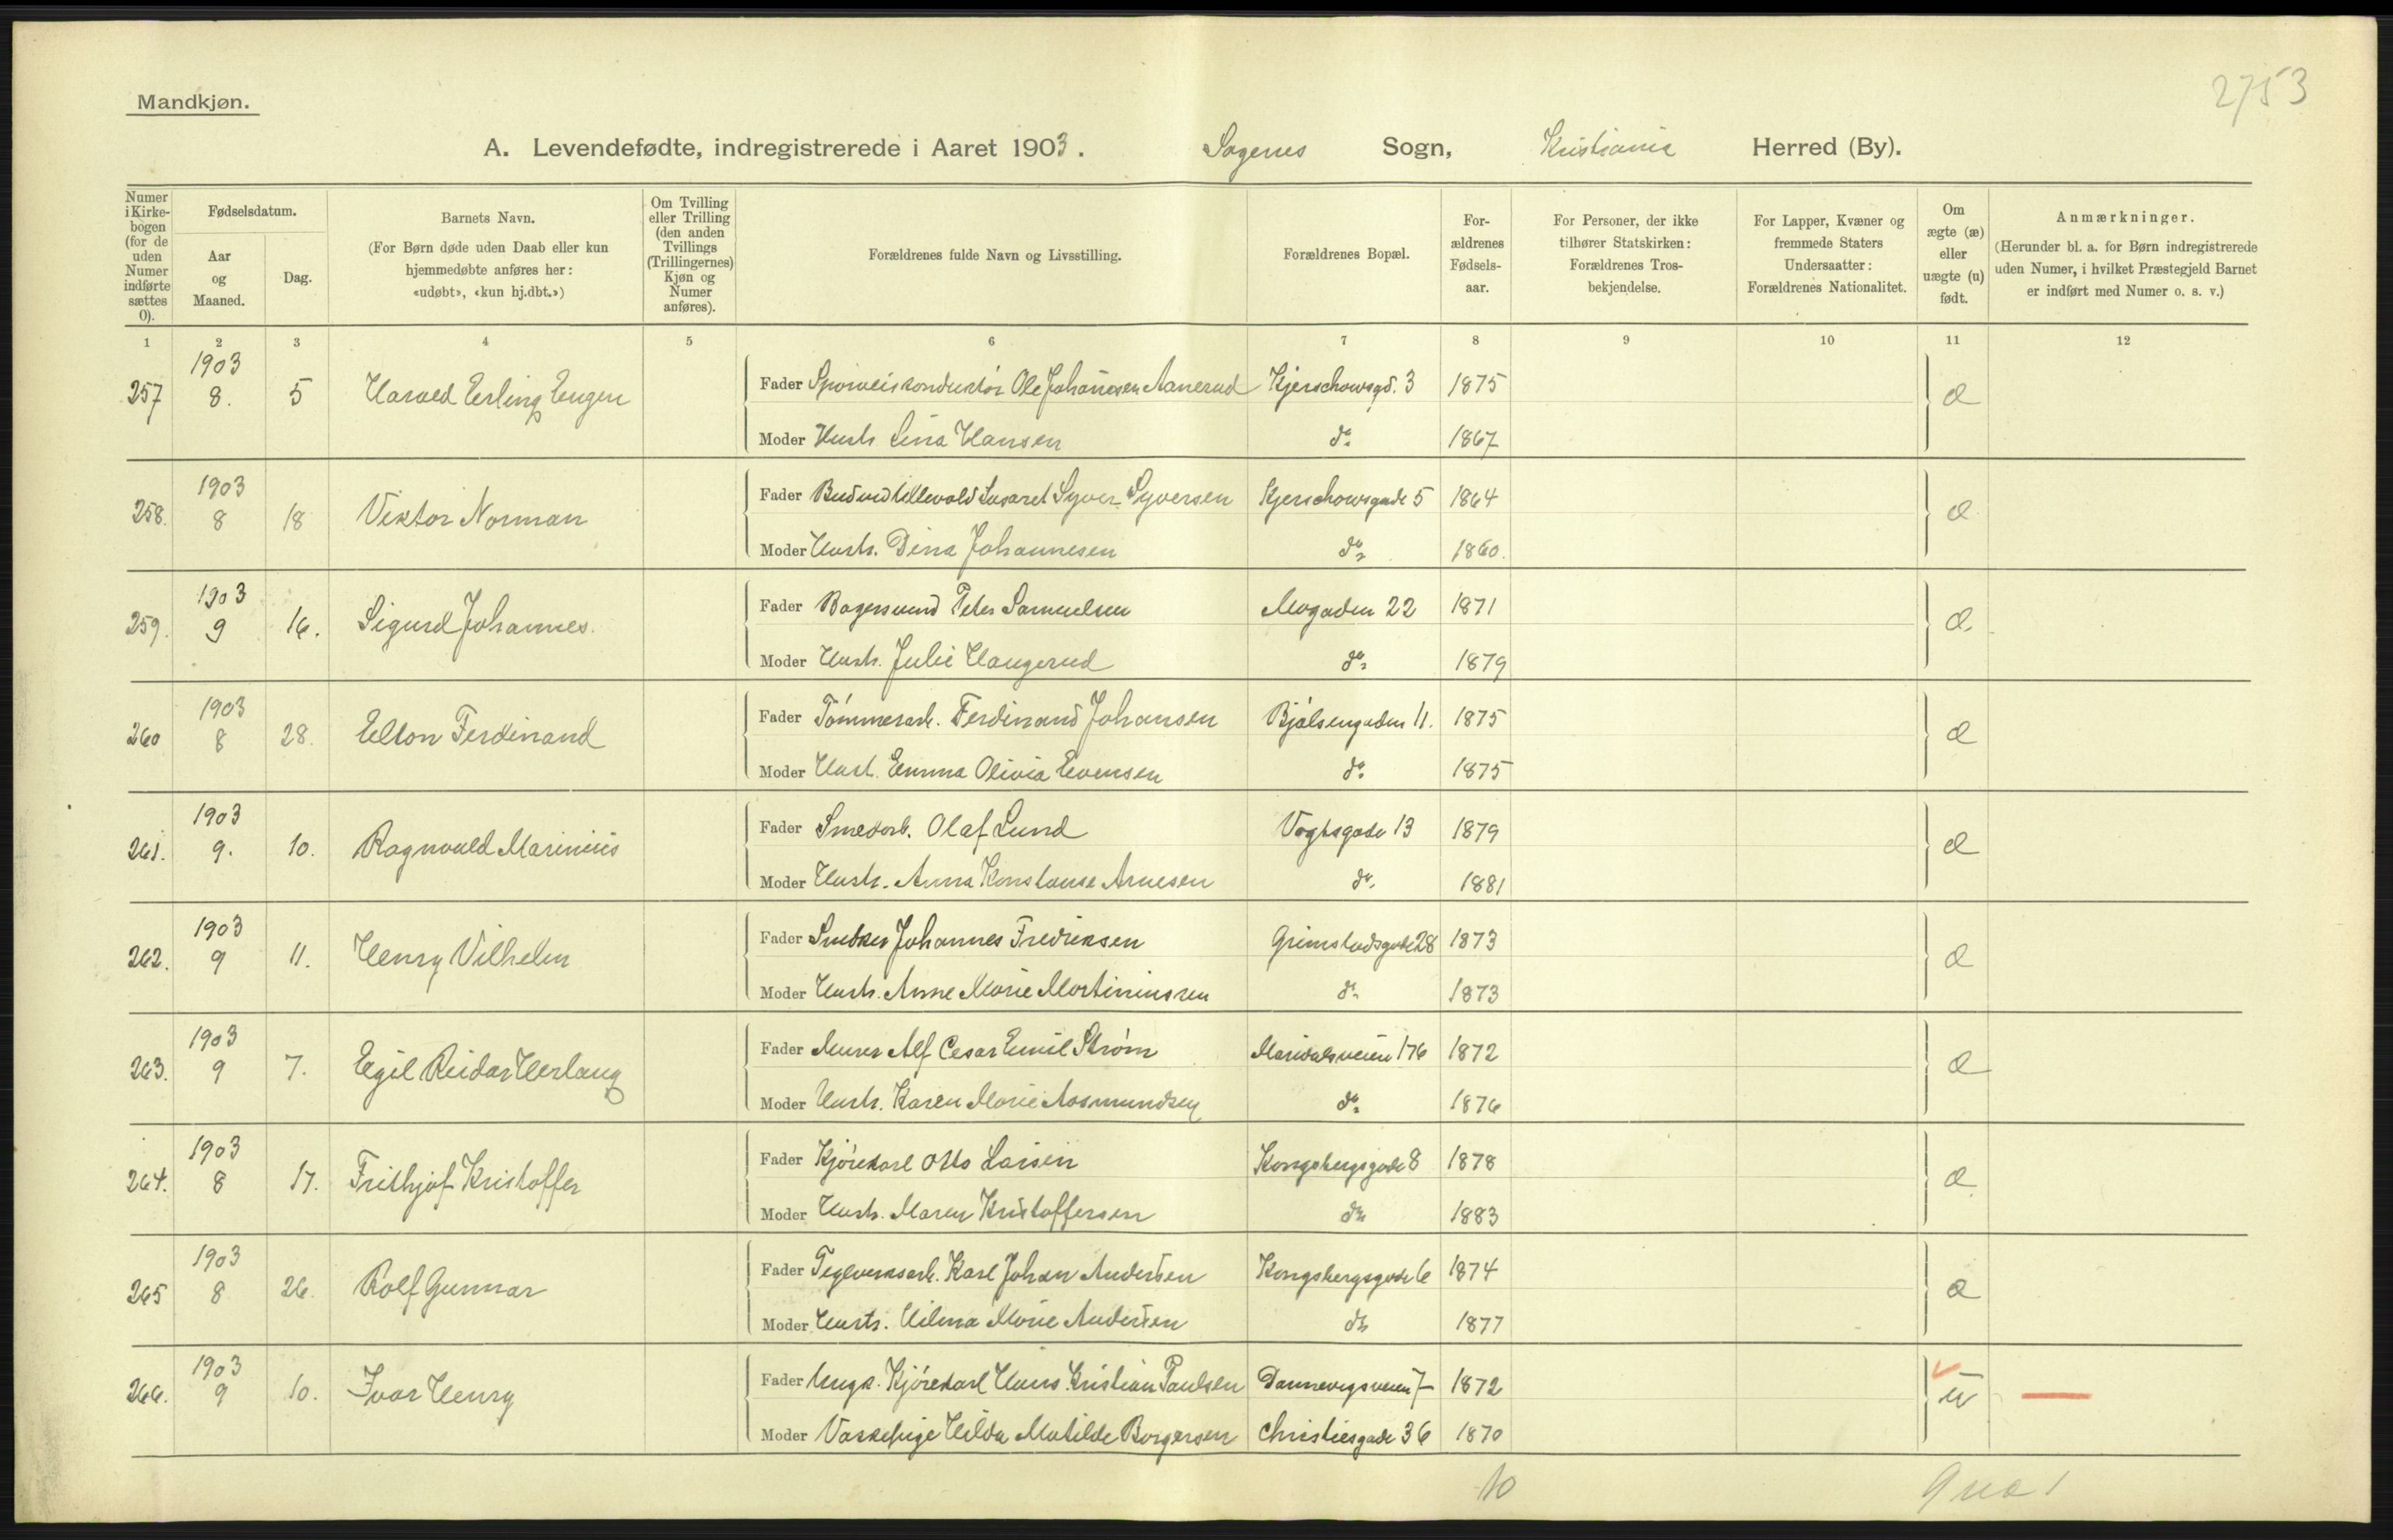 2753
Mandkjøn.
A. Levendefødte, indregistrerede i Aaret 1903. Sagenes Sogn, Kristiania Herred (By).
Numer i Kirke-bogen (for de uden Numer indførte sættes 0).
Fødselsdatum.
Aar og Maaned.
Dag.
Barnets Navn.
(For Børn døde uden Daab eller kun hjemmedøbte anføres her: «udøbt», «kun hj.dbt.»)
Om Tvilling eller Trilling (den anden Tvillings (Trillingernes) Kjøn og Numer anføres).
Forældrenes fulde Navn og Livsstilling.
Forældrenes Bopæl.
For-ældrenes Fødsels-aar.
For Personer, der ikke tilhører Statskirken: Forældrenes Tros-bekjendelse.
For Lapper, Kvæner og fremmede Staters Undersaatter: Forældrenes Nationalitet.
Om ægte (æ) eller uægte (u) født.
Anmærkninger.
(Herunder bl. a. for Børn indregistrerede uden Numer, i hvilket Præstegjeld Barnet er indført med Numer o. s. v.)
1 2 3 4 5 6 7 8 9 10 11 12
257 1903 8. 5 Harald Erling Eugen Fader Sporveiskonduktör Ole Johannesen Aanerud Kjerschowsgd. 3 1875 æ
Moder Hustr. Lina Hansen do 1867
258. 1903 8 18 Viktor Norman Fader Bud ved Ullevold Lasaret Syver Syversen Kjerschowsgade 5 1864 æ
Moder Hustr. Dina Johannesen do 1860.
259. 1903 9 16. Sigurd Johannes. Fader Bagersvend Peter Samuelsen Mogaden 22 1871 æ
Moder Hustr. Julie Haugerud do 1879
260 1903 8 28. Elton Ferdinand Fader Tömmerarb. Ferdinand Johansen Bjölsengaden 11. 1875 æ
Moder Hust. Emma Olivia Evensen do 1875
261. 1903 9. 10. Ragnvald Marinius Fader Smedarb. Olaf Lund Vogtsgade 13 1879 æ
Moder Hustr. Anna Konstanse Arnesen do 1881
262. 1903 9 11. Henry Vilhelm Fader Snedker Johannes Fredriksen Grimstadsgade 28 1873 æ
Moder Hustr. Anne Marie Martiniussen do 1873
263. 1903 9 7. Egil Reidar Herlaug Fader Murer Alf Cesar Emil Strøm Maridalsveien 176 1872 æ
Moder Hustr. Karen Marie Aasmundsen do 1876
264. 1903 8 17. Frithjof Kristoffer Fader Kjörekarl Otto Larsen Kongsbergsgade 8 1878 æ
Moder Hustr. Maren Kristoffersen do 1883
265 1903 8 26. Rolf Gunnar Fader Teglverksarb. Karl Johan Andersen Kongsbergsgade 6 1874 æ
Moder Hustr. Hilma Marie Andersen do 1877
266. 1903 9 10. Ivar Henry Fader Ungk. Kjörekarl Hans Kristian Paulsen Dannevigsveien 7 1872 u
Moder Vaskepige Hilda Matilde Borgersen Christiesgade 36 1870
10 9 uæ 1